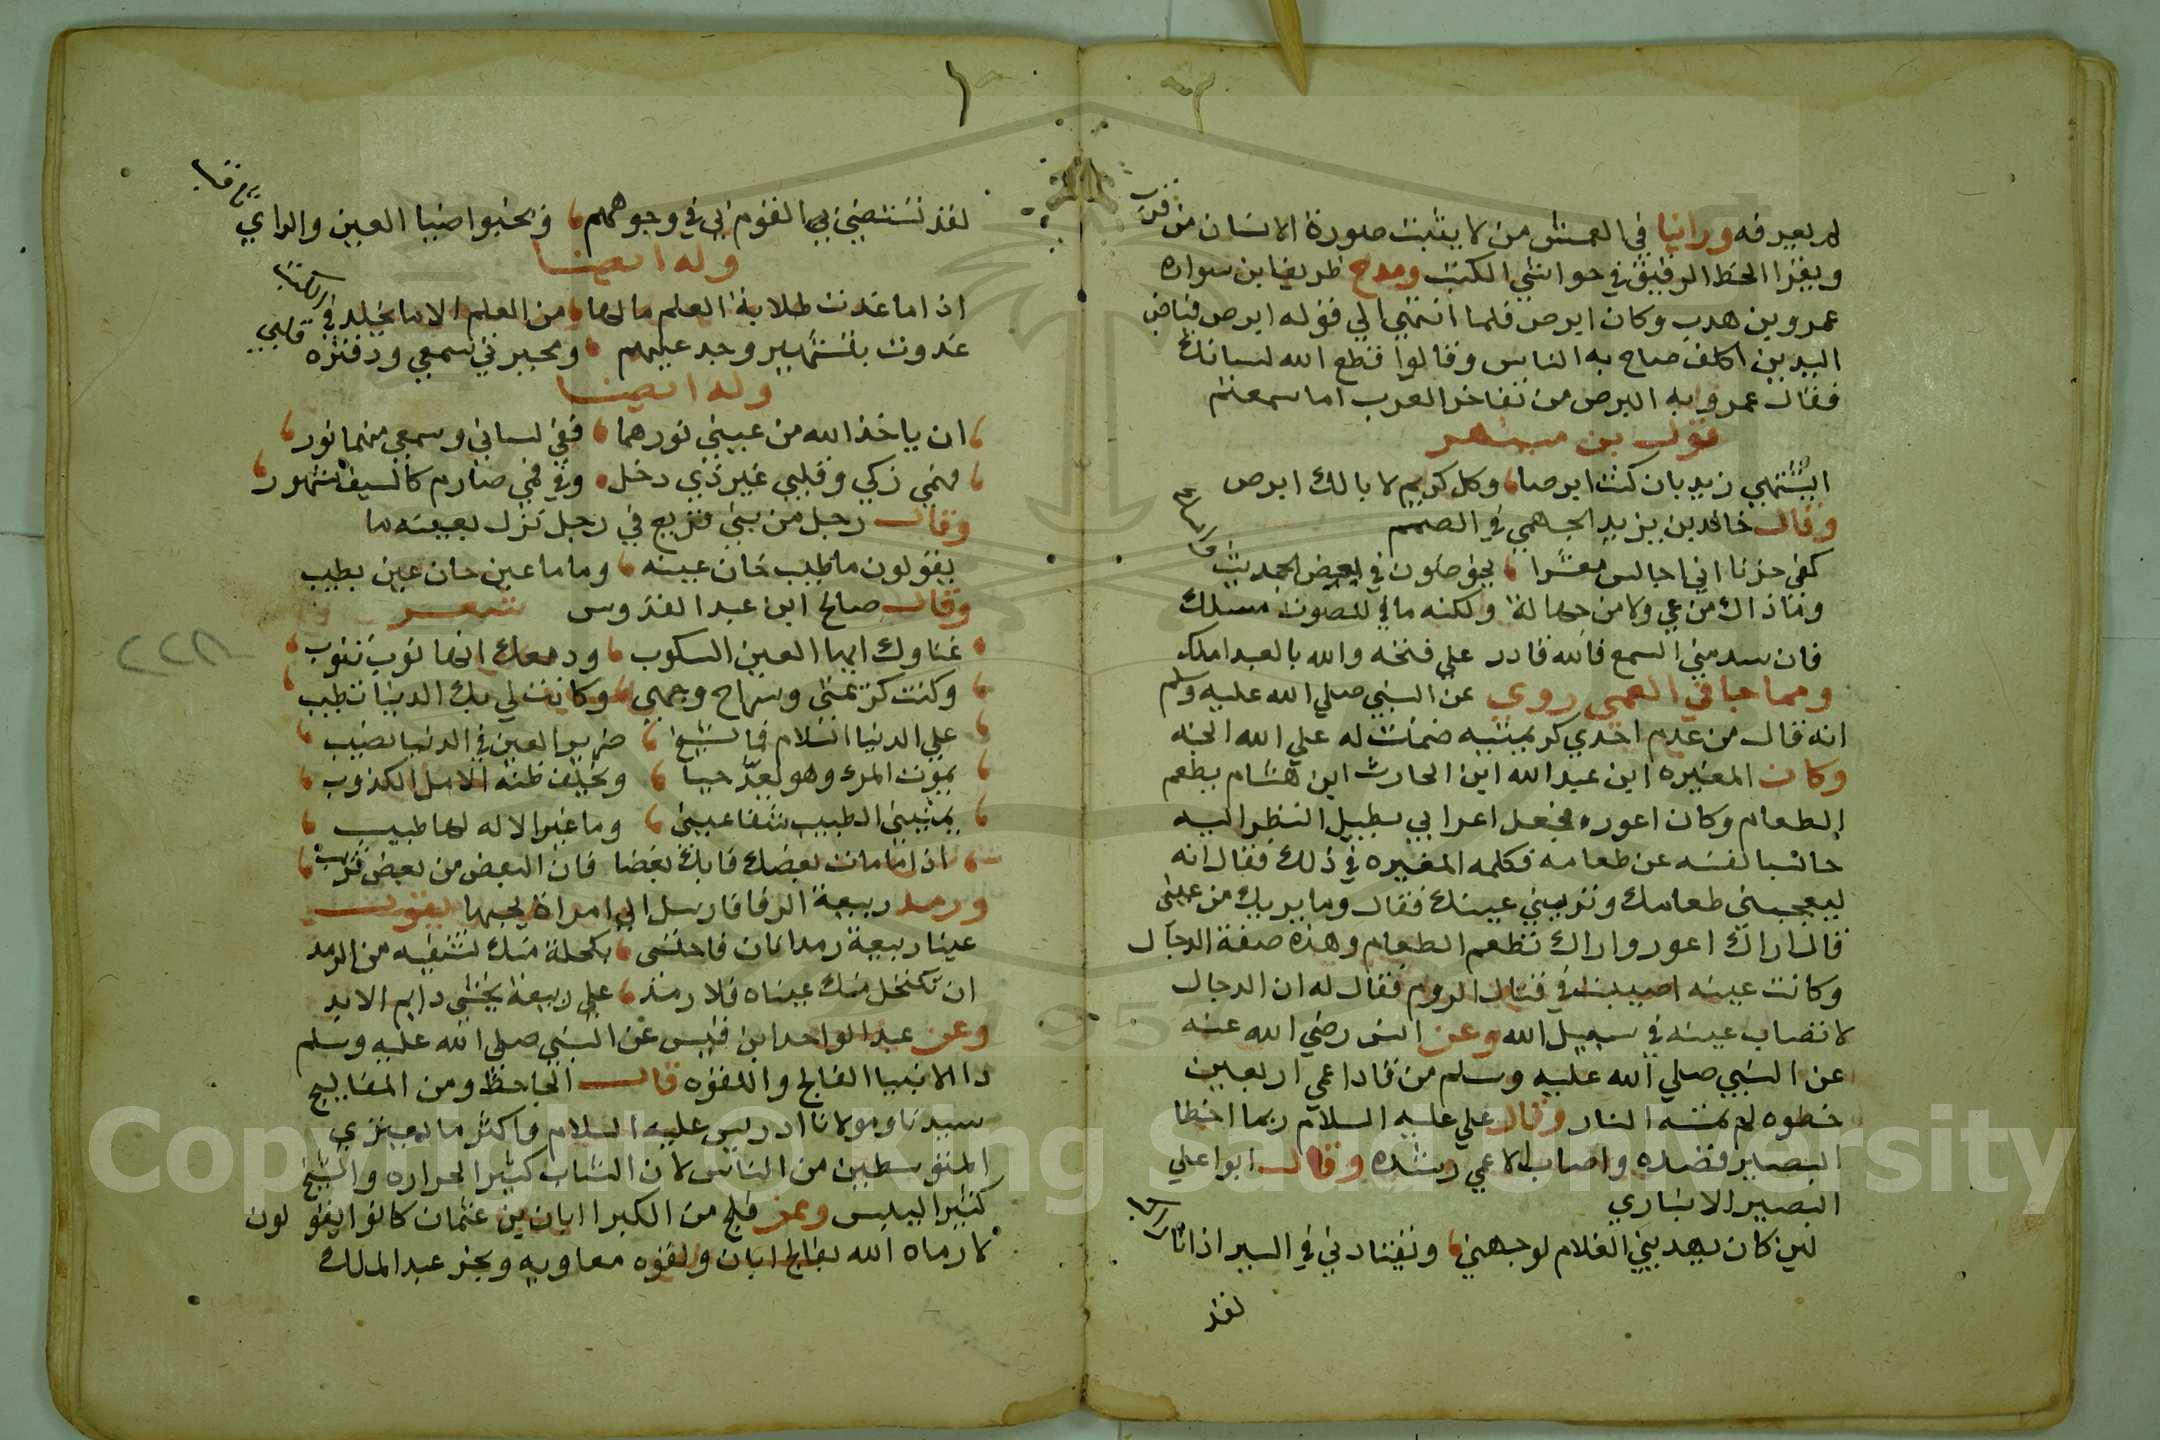 لم يعرفه وراينا في العمش من لا يثبت صورة الانسان من قرب
ويقرا الخط الرقيق في حواشي الكتب ومدح ظريف ابن سواده
عمرو بن هدب وكان ابرص فلما انتهي الي قوله ابرص فياض
اليدين اكلف صاح به الناس وقالوا قطع الله لسانك
فقال عمرو به البرص من تفاخر العرب اما سمعتم
قول بن مسهر
ايشتهي زيد بان كنت ابرصا وكل كريم لا بالك ابرص
وقال خالد بن يزيد الجهمي في الصمم
كفي حزنا اني اجالس معشرا يخوضون في بعض الحديث
وماذاك من عي ولا من جهالة ولكنه ما في للصوت مسلك
فان سد مني السمع فالله قادر علي فتحه والله بالعبد املك
ومما جا في العمي روي عن النبي صلي الله عليه وسلم
انه قال من عدم احدي كريمتيه ضمنت له علي الله الجنه
وكان المغيره ابن عبد الله ابن الحارث ابن هشام يطعم
الطعام وكان اعوره فجعل اعرابي يطيل النظر اليه
حابسا نفسه عن طعامه فكلمه المغيره في ذلك فقال انه
ليعجبني طعامك وتريبني عينك فقال وما يريبك من عيني
قال اراك اعور واراك تطعم الطعام وهذه صفة الدجال
وكانت عينه اصيبت في قتال الروم فقال له ان الدجال
لا تصاب عينه في سبيل الله وعن انس رضي الله عنه
عن النبي صلي الله عليه وسلم من قاد اعمي اربعين
خطوه لم تمسه النار وقال علي عليه السلام ربما اخطا
البصير قصده واصاب الاعمي رشده وقال ابوا علي
البصير الانباري
لين كان يهديني الغلام لوجهتي ويقتادني في السير اذ انا راكب
لقد
لقد تستضي بي القوم في وجوههم ويخبوا ضيا العين والراي
وله ايضا
اذا ما غدت طلابة العلم مالها من العلم الا ما يخلد في الكتب
غدوت بتشمير وجد عليهم ومحبرتي سمعي ودفتره قلبي
وله ايضا
ان ياخذ الله من عيني نورهما ففي لساني وسمعي منهما نور
فهمي زكي وقلبي غير ذي دخل وفي فمي صارم كالسيف مشهور
وقال رجل من بني قريع في رجل نزل بعينه ما
يقولون ما طيب خان عينه وما ما عين خان عين بطيب
وقال صالح ابن عبد القدوس شعر
عناوك ايها العين السكوب ودمعك انها نوب تنوب
وكنت كريمتي وسراح وجهي وكانت لي بك الدنيا تطيب
علي الدنيا السلام فما لشيخ ضرير العين في الدنيا نصيب
يموت المرء وهو يعد حيا ويخلف ظنه الامل الكذوب
يمنيني الطبيب شفا عيني وما غير الاله لها طبيب
اذا ما مات بعضك فابك بعضا فان البعض من بعض قريب
ورمد ربيعة الرقا فارسل الي امراة يحبها يقول
عينا ربيعة رمداتان فاحتسي بكحلة منك تشفيه من الرمد
ان تكتحل منك عيناه فلا رمد علي ربيعة يخشي دايم الابد
وعن عبد الواحد ابن قيس عن النبي صلي الله عليه وسلم
دا الانبيا الفالج واللقوه قال الجاحظ ومن المفاليج
سيدنا ومولانا ادريس عليه السلام واكثر ما يعتري
المتوسطين من الناس لان الشاب كثير الحراره والشيخ
كثير اليبس وممن فلج من الكبرا ابان بن عثمان كانوا يقولون
لا رماه الله بفالج ابان ولقوه معاويه وبخر عبد الملك
٢٢٨